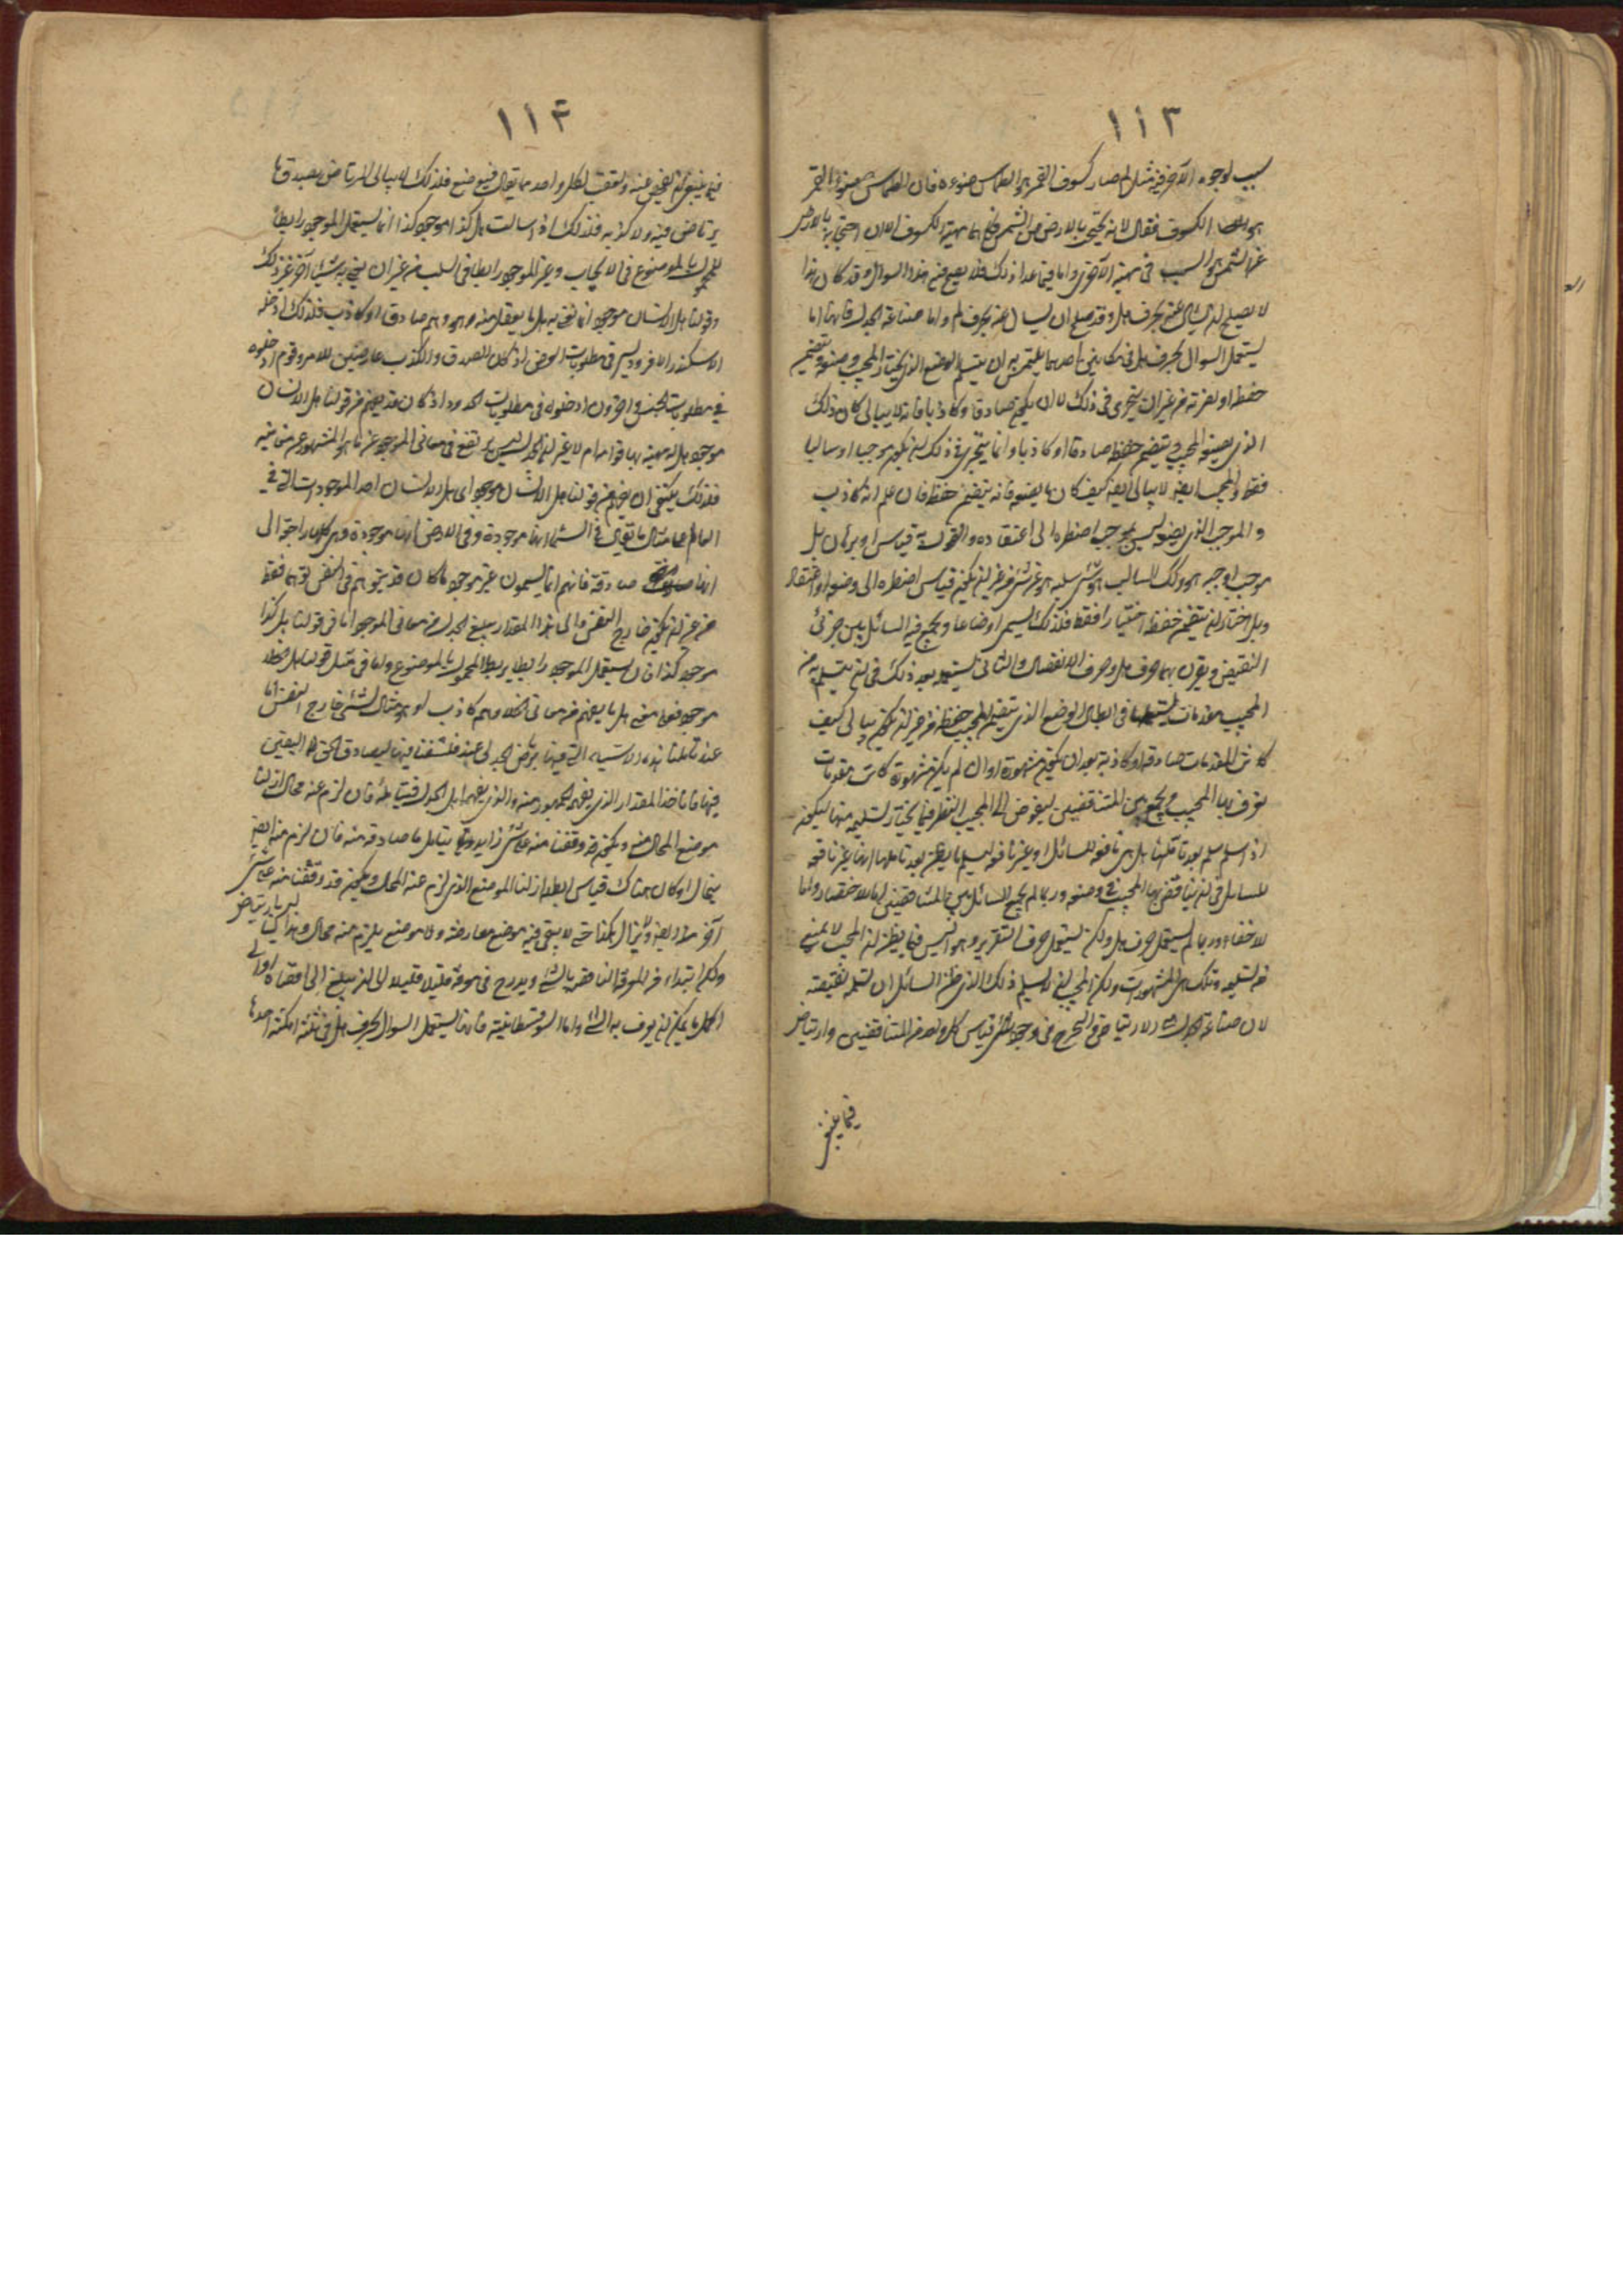 ١١٣
سبب لوجود الآخر فيه مثل لم صار كسوف القمر هو انطماس ضوءه فان انطماس ضوء القمر
هو الكسوف فقال لانه يحتجب بالارض عن الشمس فانما هية الكسوف الان احتجابه بالارض
عن الشمس هو السبب في مهية الآخر واما فيما عدا ذلك فلا يصح فيه هذا السوال وقد كان هذا
لا يصلح ان يسأل عنه بحرف هل وقد صلح ان يسال عنه بحرف لم واما صناعة الجدل فانها انما
يستعمل السوال بحرف هل في مكانين احدهما يلتمس به ان يتسلم الوضع الذي يختار المجيب وضعه ويتضمن
حفظه او نصرته من غير ان يتحرى في ذلك لا ان يكون صادقا ولا كاذبا فانه لا يبالي كان ذلك
الذي يضعه المجيب ويتضمن حفظه صادقا او كاذبا وانما يتحرى في ذلك ان يكون موجبا او سالبا
فقط والمجيب ايضا لا يبالي ايضا كيف كان ما يضعه فانه يتضمن حفظه فان علم انه كاذب
والموجب الذي يضع ليس يوجب اضطره الى اعتقاده والقول به قياس او برهان بل
موجب اوجبه هو وكذلك السالب هو شيء سلبه هو عن شيء من غير ان يكون قياس اضطره الى وضعه او اعتقاده
وبل اختار ان يتضمن حفظه اختيارا فقط فلذلك يسمى اوضاعا ويجمع فيه السائل بين جزئي
النقيض ويقرن بهما حرف هل وحرف الانفصال والثاني يستعمله بعد ذلك في ان يتسلم به من
المجيب مقدمات يستعملها في ابطال الوضع الذي يتضمن المجيب حفظه من غير ان يكون يبالي كيف
كانت المقدمات صادقة او كاذبة بعد ان يكون مشهورة او ان لم يكن مشهورة كانت مقدمات
يعترف بها المجيب ويجمع بين المتناقضين ليفوض الى المجيب النظر فيما يختار تسليمه منها ليكون
اذا سلم سلم بعد تأملها هل هي نافعة للسائل او غير نافعة ليسلم ما يظن بعد تاملها انها غير نافعة
للسائل في ان يناقض بها المجيب في وضعه وربما لم يجمع السائل بين المتناقضين اما للاختصار واما
للاخفاء وربما لم يستعمل حرف هل ولكن يستعمل حرف التقرير وهو اليس فيما يظن ان المجيب لا يمنع
من تسليمه وتلك هي المشهورات ولكن المجيب ان لا يسلم ذلك الذي ظن السائل ان يتسلمه لنقيضه
لان صناعة الجدل هي للارتياض والتخرج في وجود قياس كل واحد من المتناقضين وارتياض
فيما ينبغي
١١٤
فيما ينبغي ان يفحص عنه وتعقب لكل واحد مما يقال فيه منع فلذلك لا يبالي المرتاض بصدق ما
يرتاض فيه ولا كذبه فلذلك اذا سالت هل كذا موجود كذا انما يستعمل الموجود رابطا
للمحمول بالموضوع في الايجاب وغير الموجود رابطا في السلب من غير ان يعني به شيئا آخر غير ذلك
وقولنا هل الانسان موجود انما نعني به هل ما يعقل منه وهو وهم صادق او كاذب فلذلك ادخله
الاسكندر الافروديسي في مطلوبات العرض اذ كان الصدق والكذب عارضين للامر وقوم ادخلوه
في مطلوبات الجنس واخرون ادخلوه في مطلوبات الحدود اذ كان قد يفهم من قولنا هل الانسان
موجود هل له مهية بها قوام ام لا غير ان الجدل ليس يرتفع في معاني الموجود عن ما هو المشهور من معانيه
فلذلك ينبغي ان يفهم من قولنا هل الانسان موجود اي هل الانسان احد الموجودات التي في
العالم على مثال ما يقال في السماء انها موجودة وفي الارض انها موجودة وهي كلها راجعة الى
انها صادقة فانهم انما يسمون غير موجود ما كان قد يتوهم في النفس توهما فقط
من غير ان يكون خارج النفس والى هذا المقدار يبلغ الجدل من معاني الموجود اما في قولنا هل كذا
موجود كذا فان يستعمل الموجود رابطا يربط المحمول بالموضوع واما في مثل قولنا هل الخلاء
موجود فعلى معنى هل ما يفهم من معاني الخلاء وهم كاذب او هو مثال لشيء خارج النفس اما
عند تأملنا هذه الاشياء التي فيها يرتاض الجدل عند فلسفتنا فيها لنصادف الحق اليقين
فيها فانا نأخذ المقدار الذي يفهم الجمهور منه والذي يفهم اهل الجدل فنتامله فان لزم عنه محال ازلنا
موضع المحال منه ويكون قد وقفنا منه على شيء زايد يتامل ما صادفه منه فان لزم منه ايضا
محال او كان هناك قياس ابطله ازلنا الموضع الذي لزم عنه المحال ويكون قد وقفنا منه على شيء
آخر ايضا ولا يزال هكذا حتى لا يبقى فيه موضع معارضة ولا موضع يلزم منه محال وهذا ليس بارتياض
ولكن ابتداء من المعرفة الناقصة بالشيء ويدرج في معرفة قليلا قليلا الى ان يبلغ الى اقصاه او الى
اكمل ما يمكن ان يعرف به الشيء واما السوفسطائية فانها يستعمل السوال بحرف هل في ثلثة امكنة احدها